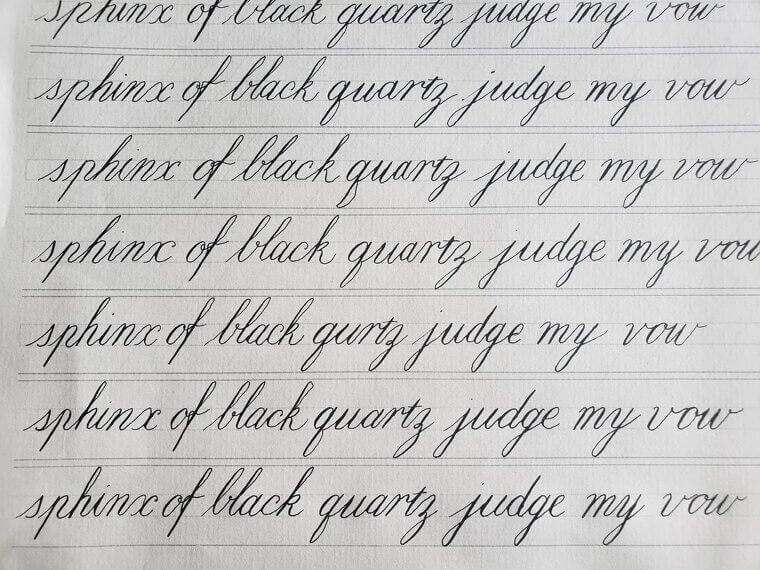 sphinx of black quartz judge my vow
sphinx of black quartz judge my vow
sphinx of black quartz judge my vow
sphinx of black quartz judge my vow
sphinx of black qurtz judge my vow
sphinx of black quartz judge my vow
sphinx of black quartz judge my vow